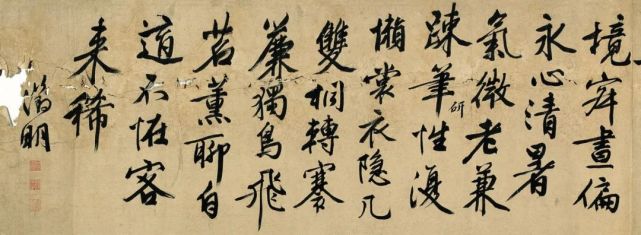 境寂晝偏
永心清暑
氣微老兼
疎筆研性復
懶裳衣隐几
雙桐轉褰
簾獨鳥飛
茗薰聊自
適不恠客
来稀
徵明